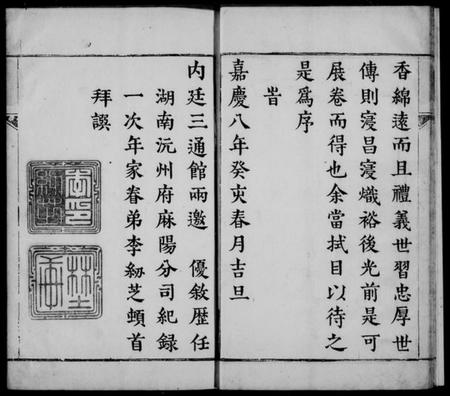 香綿遠而且禮義世習忠厚世
傳則寖昌寖熾裕後光前是可
展卷而得也余當拭目以待之
是爲序
旹
嘉慶八年癸亥春月吉旦
内廷三通館兩邀　優敘歷任
湖南沅州府麻陽分司紀録
一次年家眷弟李紉芝頓首
拜譔